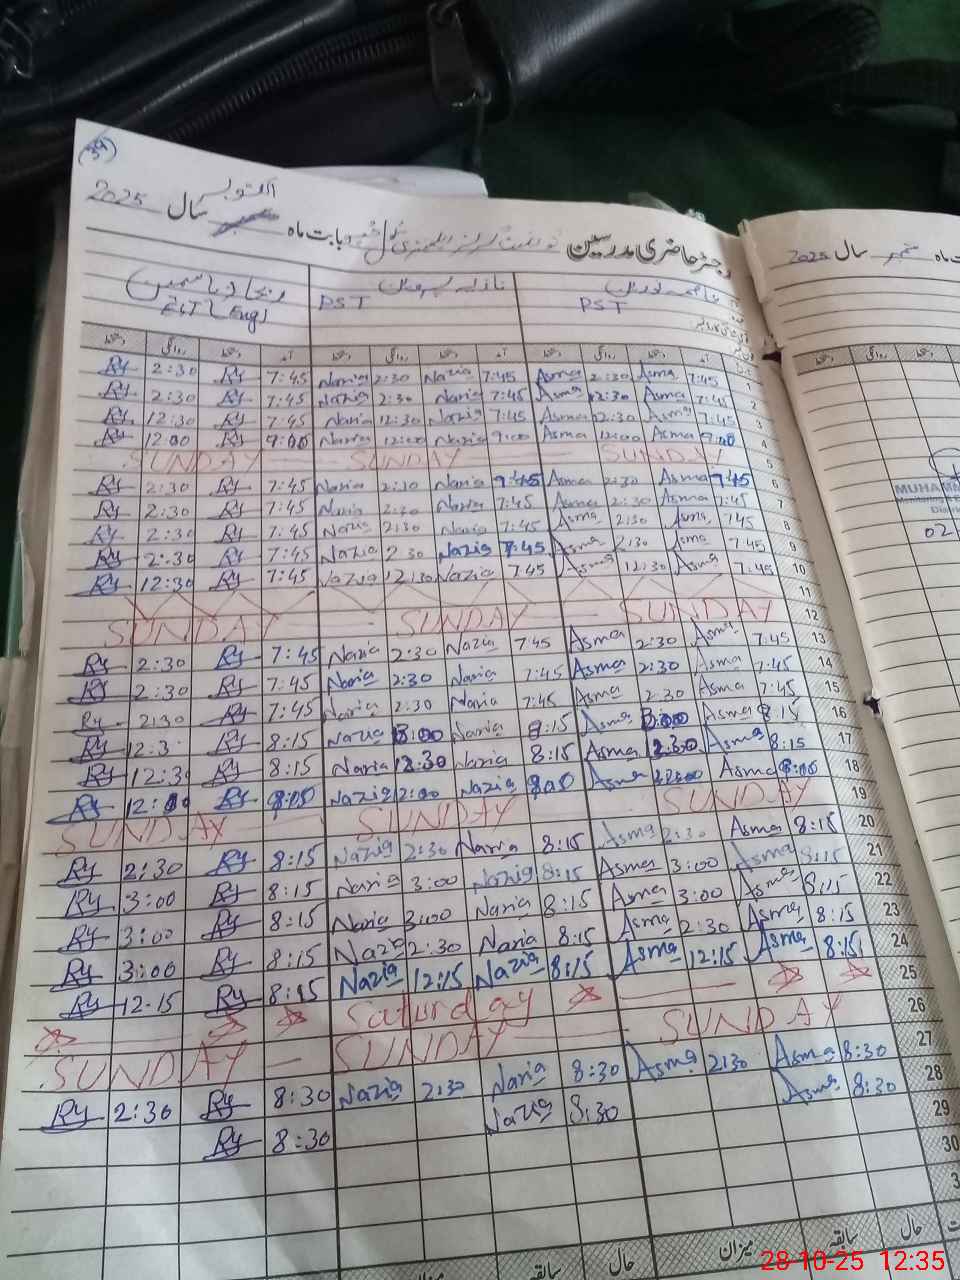 39
رجسٹر حاضری مدرسین گورنمنٹ گرلز ایلیمنٹری سکول بابت ماہ اکتوبر سال 2025
ماہ ستمبر سال 2025
PST نازیہ پروین PST
EST (Eng)
دستخط روانگی دستخط آمد دستخط روانگی دستخط آمد دستخط روانگی دستخط آمد
Ry 2:30 Ry 7:45 Nazia 2:30 Nazia 7:45 Asma 2:30 Asma 7:45 1
Ry 2:30 Ry 7:45 Nazia 2:30 Nazia 7:45 Asma 2:30 Asma 7:45 2
Ry 12:30 Ry 7:45 Nazia 12:30 Nazia 7:45 Asma 12:30 Asma 7:45 3
Ry 12:00 Ry 9:00 Nazia 12:00 Nazia 9:00 Asma 12:00 Asma 9:00 4
SUNDAY SUNDAY SUNDAY 5
Ry 2:30 Ry 7:45 Nazia 2:30 Nazia 7:45 Asma 2:30 Asma 7:45 6
Ry 2:30 Ry 7:45 Nazia 2:30 Nazia 7:45 Asma 2:30 Asma 7:45 7
Ry 2:30 Ry 7:45 Nazia 2:30 Nazia 7:45 Asma 2:30 Asma 7:45 8
Ry 2:30 Ry 7:45 Nazia 2:30 Nazia 7:45 Asma 2:30 Asma 7:45 9
Ry 12:30 Ry 7:45 Nazia 12:30 Nazia 7:45 Asma 12:30 Asma 7:45 10
11
SUNDAY SUNDAY SUNDAY 12
Ry 2:30 Ry 7:45 Nazia 2:30 Nazia 7:45 Asma 2:30 Asma 7:45 13
Ry 2:30 Ry 7:45 Nazia 2:30 Nazia 7:45 Asma 2:30 Asma 7:45 14
Ry 2:30 Ry 7:45 Nazia 2:30 Nazia 7:45 Asma 2:30 Asma 7:45 15
Ry 12:3 Ry 8:15 Nazia 3:00 Nazia 8:15 Asma 3:00 Asma 8:15 16
Ry 12:30 Ry 8:15 Nazia 12:30 Nazia 8:15 Asma 12:30 Asma 8:15 17
Ry 12:00 Ry 9:00 Nazia 12:00 Nazia 9:00 Asma 12:00 Asma 9:00 18
SUNDAY SUNDAY SUNDAY 19
Ry 2:30 Ry 8:15 Nazia 2:30 Nazia 8:15 Asma 2:30 Asma 8:15 20
Ry 3:00 Ry 8:15 Nazia 3:00 Nazia 8:15 Asma 3:00 Asma 8:15 21
Ry 3:00 Ry 8:15 Nazia 3:00 Nazia 8:15 Asma 3:00 Asma 8:15 22
Ry 3:00 Ry 8:15 Nazia 2:30 Nazia 8:15 Asma 2:30 Asma 8:15 23
Ry 12-15 Ry 8:15 Nazia 12:15 Nazia 8:15 Asma 12:15 Asma 8:15 24
Saturday 25
SUNDAY SUNDAY SUNDAY 26
Ry 2:30 Ry 8:30 Nazia 2:30 Nazia 8:30 Asma 2:30 Asma 8:30 27
Ry 8:30 Nazia 8:30 Asma 8:30 28
29
30
3
میزان سابقہ حال میزان سابقہ حال
MUHAMM
Distri
02
28-10-25 12:35